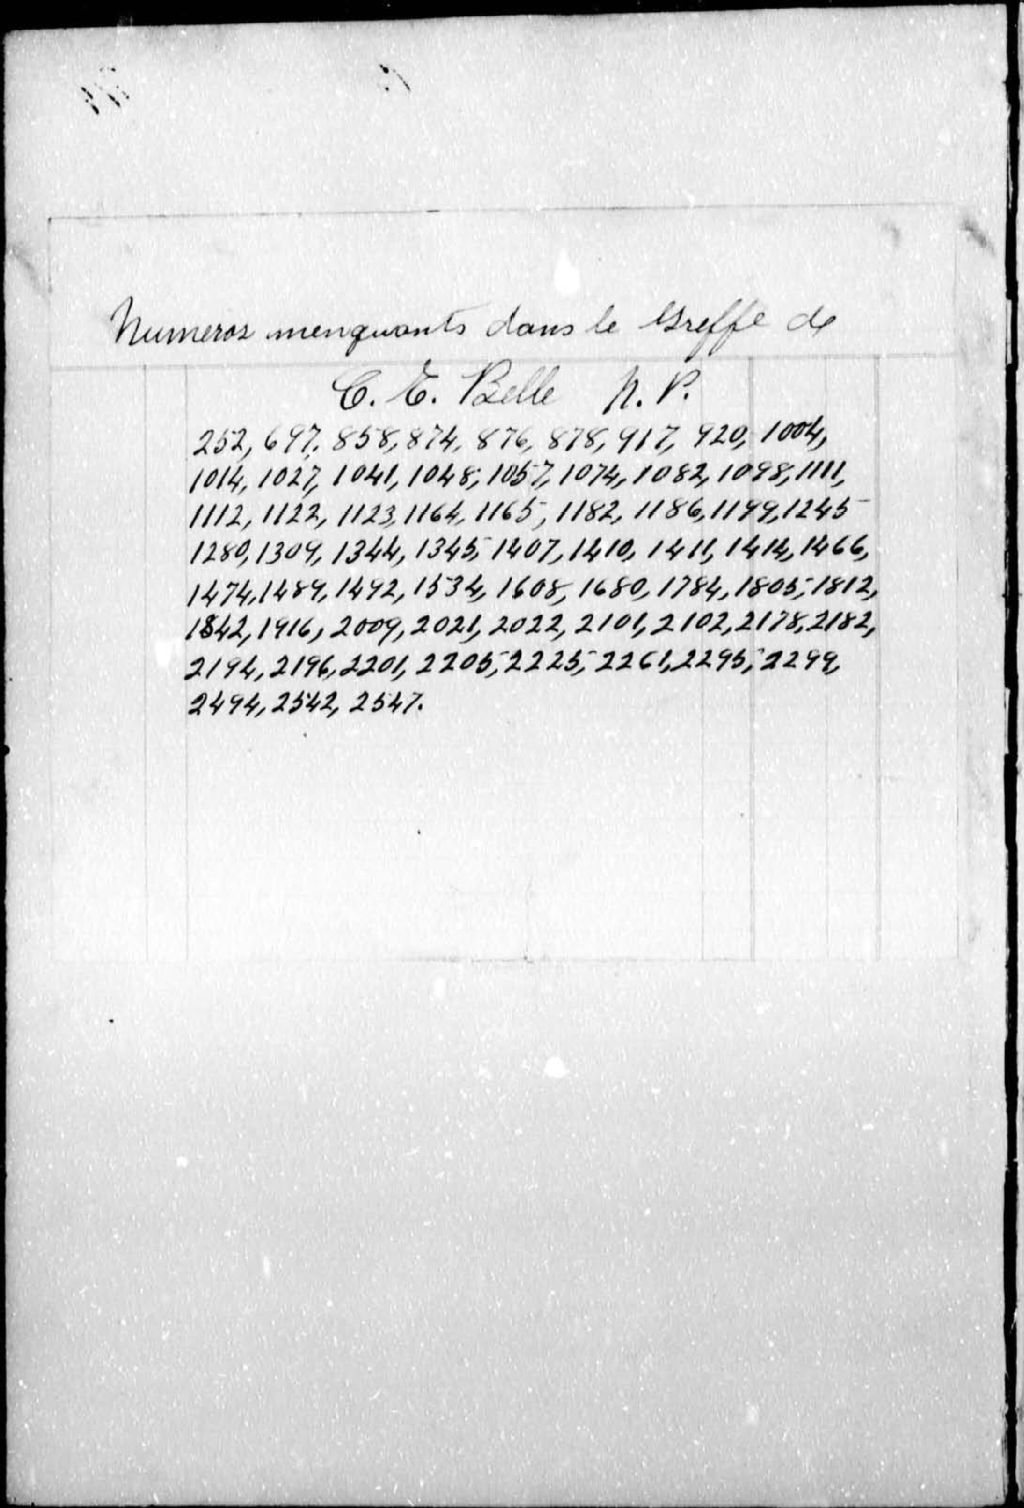 Numeros menquants dans le Greffe de
C. E. Belle N. P.
252, 697, 858, 874, 876, 878, 917, 920, 1004,
1014, 1027, 1041, 1048, 1057, 1074, 1082, 1098, 1111,
1112, 1122, 1123, 1164, 1165, 1182, 1186, 1199, 1245
1280, 1309, 1344, 1345, 1407, 1410, 1411, 1414, 1466,
1474, 1489, 1492, 1534, 1608, 1680, 1784, 1805, 1812,
1842, 1916, 2009, 2021, 2022, 2101, 2102, 2178, 2182,
2194, 2196, 2201, 2205, 2225, 2261, 2295, 2299,
2494, 2542, 2547.